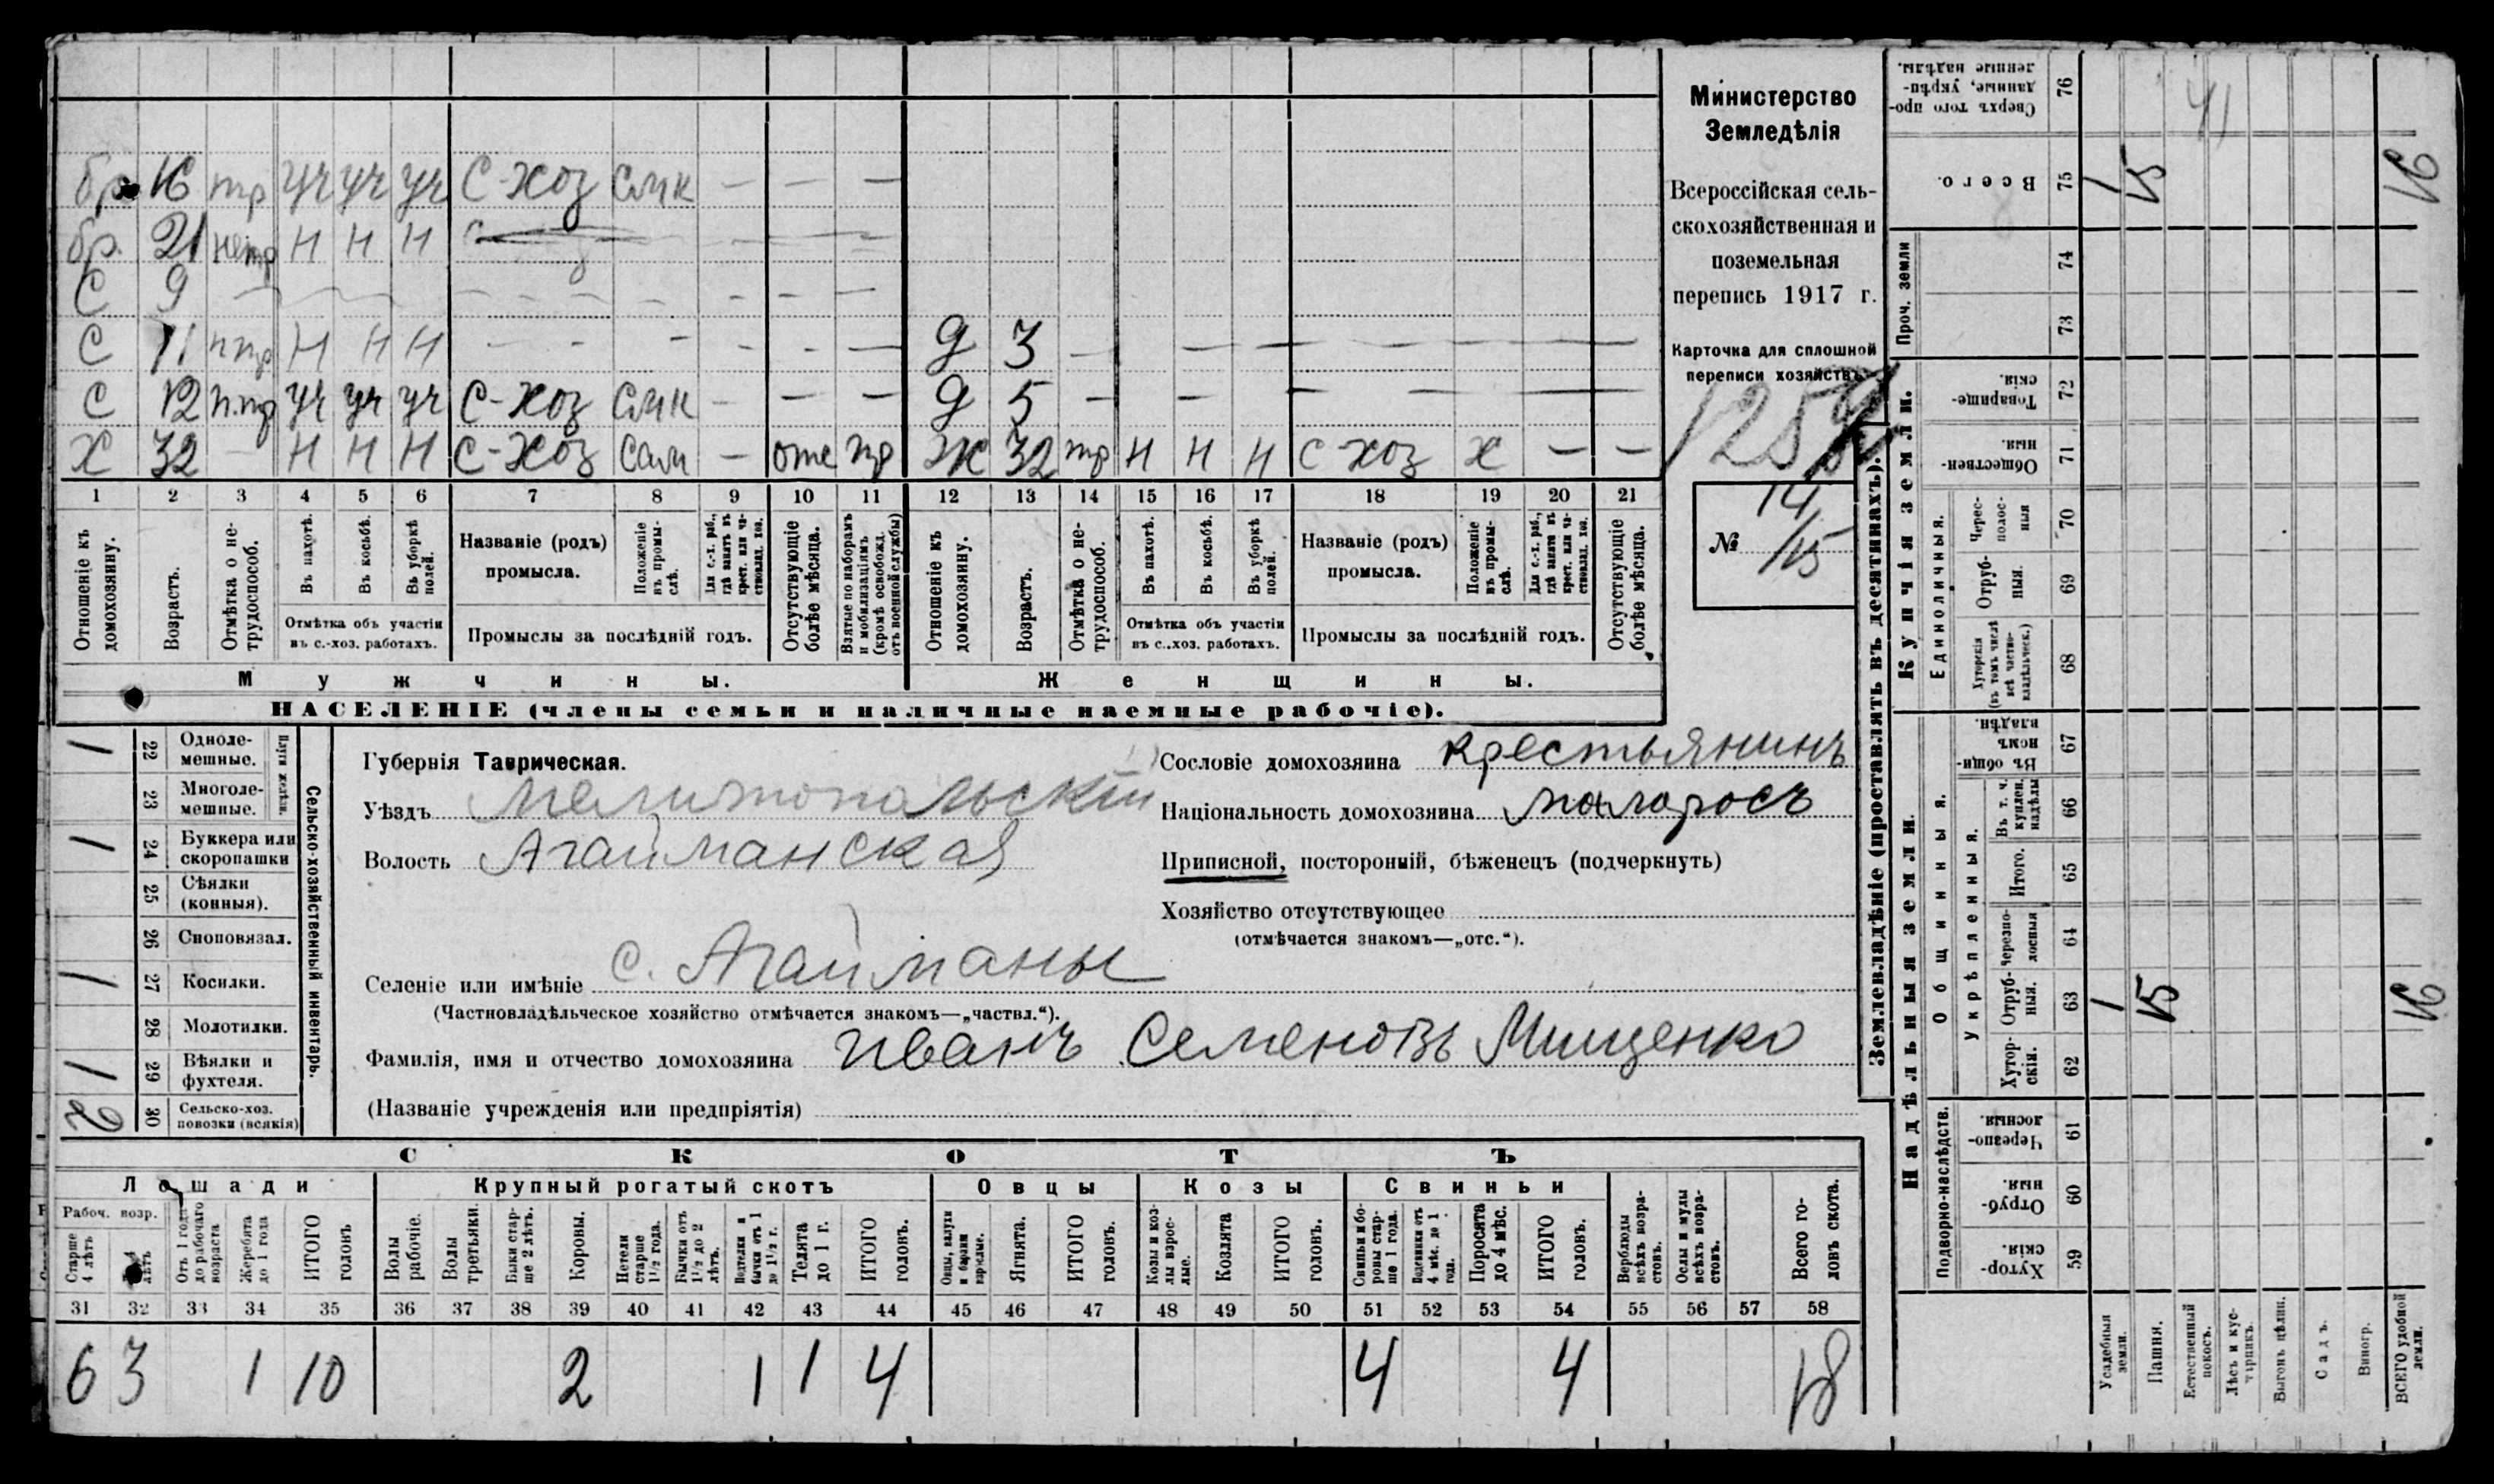 бр. 16 тр уч уч уч С-хоз Смк — — —
бр. 21 не тр Н Н Н
С 9 — — — — — — — — —
С 11 п тр Н Н Н — — — — — — Д 3 — — — — — — — —
С 12 п.тр уч уч уч С-хоз Смк — — — Д 5 — — — — — — — —
Х 32 — Н Н Н С-хоз Сам — отс пр Ж 32 тр Н Н Н С-хоз Х — —
1 2 3 4 5 6 7 8 9 10 11 12 13 14 15 16 17 18 19 20 21
Отношеніе къ домохозяину.
Возрастъ.
Отмѣтка о нетрудоспособ.
Въ пахотѣ.
Въ косьбѣ.
Въ уборкѣ полей.
Отмѣтка объ участіи
въ с.-хоз. работахъ.
Названіе (родъ)
промысла.
Положеніе въ промыслѣ.
Для с.-х. раб., гдѣ занятъ въ крест. или частновлад. хоз.
Промыслы за послѣдній годъ.
Отсутствующіе болѣе мѣсяца.
Взятые по наборамъ и мобилизаціямъ (кромѣ освобожд. отъ военной службы)
Отношеніе къ домохозяину.
Возрастъ.
Отмѣтка о нетрудоспособ.
Въ пахотѣ.
Въ косьбѣ.
Въ уборкѣ полей.
Отмѣтка объ участіи
въ с..хоз. работахъ.
Названіе (родъ)
промысла.
Положеніе въ промыслѣ.
Для с.-х. раб., гдѣ занятъ въ крест. или частновлад. хоз.
Промыслы за послѣдній годъ.
Отсутствующіе болѣе мѣсяца.
Мужчины. Женщины.
НАСЕЛЕНІЕ (члены семьи и наличные наемные рабочіе).
Министерство
Земледѣлія
Всероссійская сель-
скохозяйственная и
поземельная
перепись 1917 г.
Карточка для сплошной
переписи хозяйствъ.
№ 14/15
Сельско-хозяйственный инвентарь.
Плуги желѣзн.
1 22 Одноле-
мешные.
23 Многоле-
мешные.
1 24 Буккера или
скоропашки
25 Сѣялки
(конныя).
26 Сноповязал.
1 27 Косилки.
28 Молотилки.
1 29 Вѣялки и
фухтеля.
2 30 Сельско-хоз.
повозки (всякія)
Губернія Таврическая.
Уѣздъ Мелитопольскій
Волость Агайманская
Сословіе домохозяина крестьянинъ
Національность домохозяина малоросъ
Приписной, посторонній, бѣженецъ (подчеркнуть)
Хозяйство отсутствующее
(отмѣчается знакомъ—„отс.“).
Селеніе или имѣніе с. Агайманы
(Частновладѣльческое хозяйство отмѣчается знакомъ—„частвл.“).
Фамилія, имя и отчество домохозяина Иванъ Семеновъ Мищенко
(Названіе учрежденія или предпріятія)
СКОТЪ
Лошади Крупный рогатый скотъ Овцы Козы Свиньи
Рабоч. возр.
Старше 4 лѣтъ
лѣтъ
Отъ 1 года до рабочаго возраста
Жеребята до 1 года
ИТОГО головъ
Волы рабочіе.
Волы третьяки.
Быки старше 2 лѣтъ.
Коровы.
Нетели старше 1½ года.
Бычки отъ 1½ до 2 лѣтъ.
Подтелки и бычки отъ 1 до 1½ г.
Телята до 1 г.
ИТОГО головъ.
Овцы, валухи и бараны взрослые.
Ягнята.
ИТОГО головъ.
Козы и козлы взрослые.
Козлята
ИТОГО головъ.
Свиньи и боровы старше 1 года.
Подсвинки отъ 4 мѣс. до 1 года.
Поросята до 4 мѣс.
ИТОГО головъ.
Верблюды всѣхъ возрастовъ.
Ослы и мулы всѣхъ возрастовъ.
Всего головъ скота.
31 32 33 34 35 36 37 38 39 40 41 42 43 44 45 46 47 48 49 50 51 52 53 54 55 56 57 58
6 3 1 10 2 1 1 4 4 4 18
Землевладѣніе (проставлять въ десятинахъ).
Сверхъ того проданные, укрѣпленные надѣлы. 76 41
Всего. 75 1 15 16
Проч. земли 74
73
Купчія земли.
Товарищескія. 72
Общественныя. 71
Единоличныя.
Чересполосныя 70
Отрубныя. 69
Хуторскія (въ томъ числѣ всѣ частновладѣльческ.) 68
Надѣльныя земли.
Общинныя.
Въ общинномъ владѣн. 67
Укрѣпленныя.
Въ т. ч. куплен. надѣлы 66
Итого. 65
Черезполосныя 64
Отрубныя. 63 1 15 16
Хуторскія. 62
Подворно-наслѣдств.
Черезполосныя. 61
Отрубныя. 60
Хуторскія. 59
Усадебныя земли.
Пашня.
Естественный покосъ.
Лѣсъ и кустарникъ.
Выгонъ цѣлин.
Садъ.
Виногр.
ВСЕГО удобной земли.